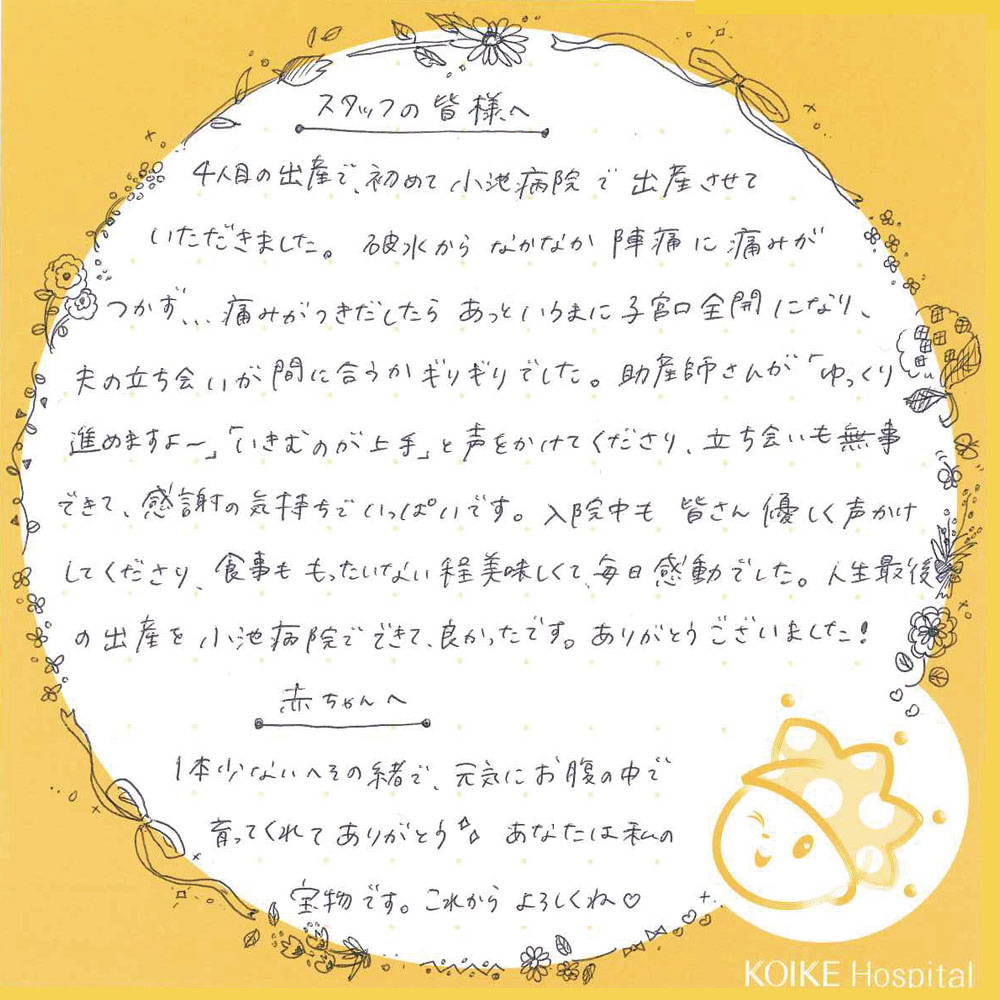 スタッフの皆様へ
4人目の出産で、初めて小池病院で出産させて
いただきました。破水からなかなか陣痛に痛みが
つかず、、、痛みがつきだしたらあっというまに子宮口全開になり、
夫の立ち会いが間に合うかギリギリでした。助産師さんが「ゆっくり
進めますよ〜」「いきむのが上手」と声をかけてくださり、立ち会いも無事
できて、感謝の気持ちでいっぱいです。入院中も皆さん優しく声かけ
してくださり、食事ももったいない程美味しくて、毎日感動でした。人生最後
の出産を小池病院でできて、良かったです。ありがとうございました!
赤ちゃんへ
1本少ないへその緒で、元気にお腹の中で
育ってくれてありがとう✧ あなたは私の
宝物です。これからよろしくね♡
KOIKE Hospital